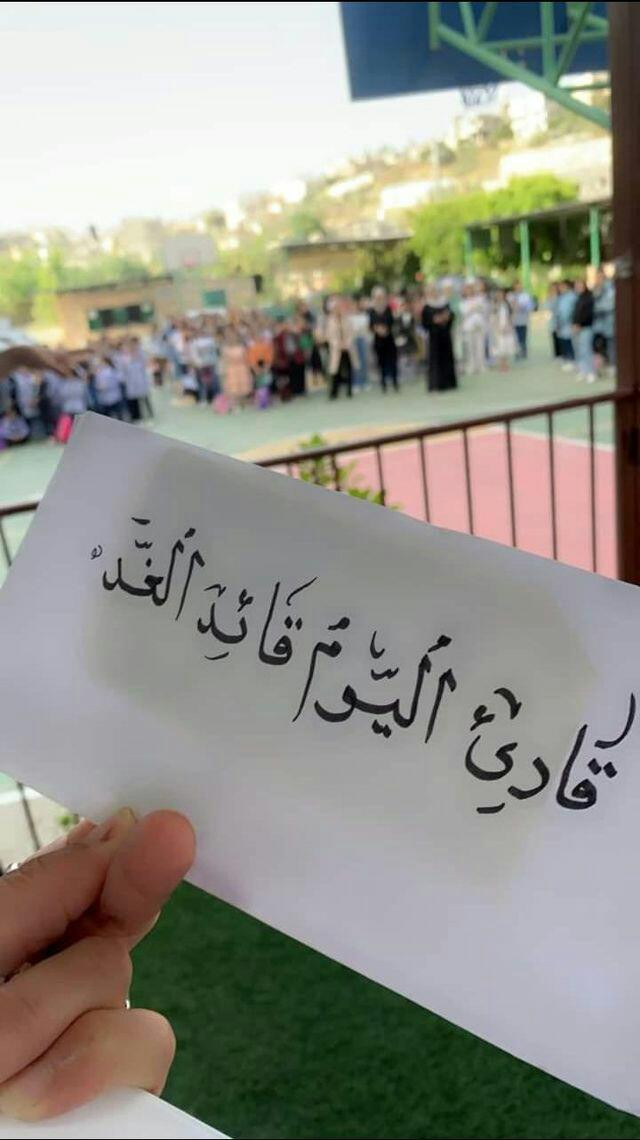 قَارِئ اليَّومُ قَائِدِ الغَّد